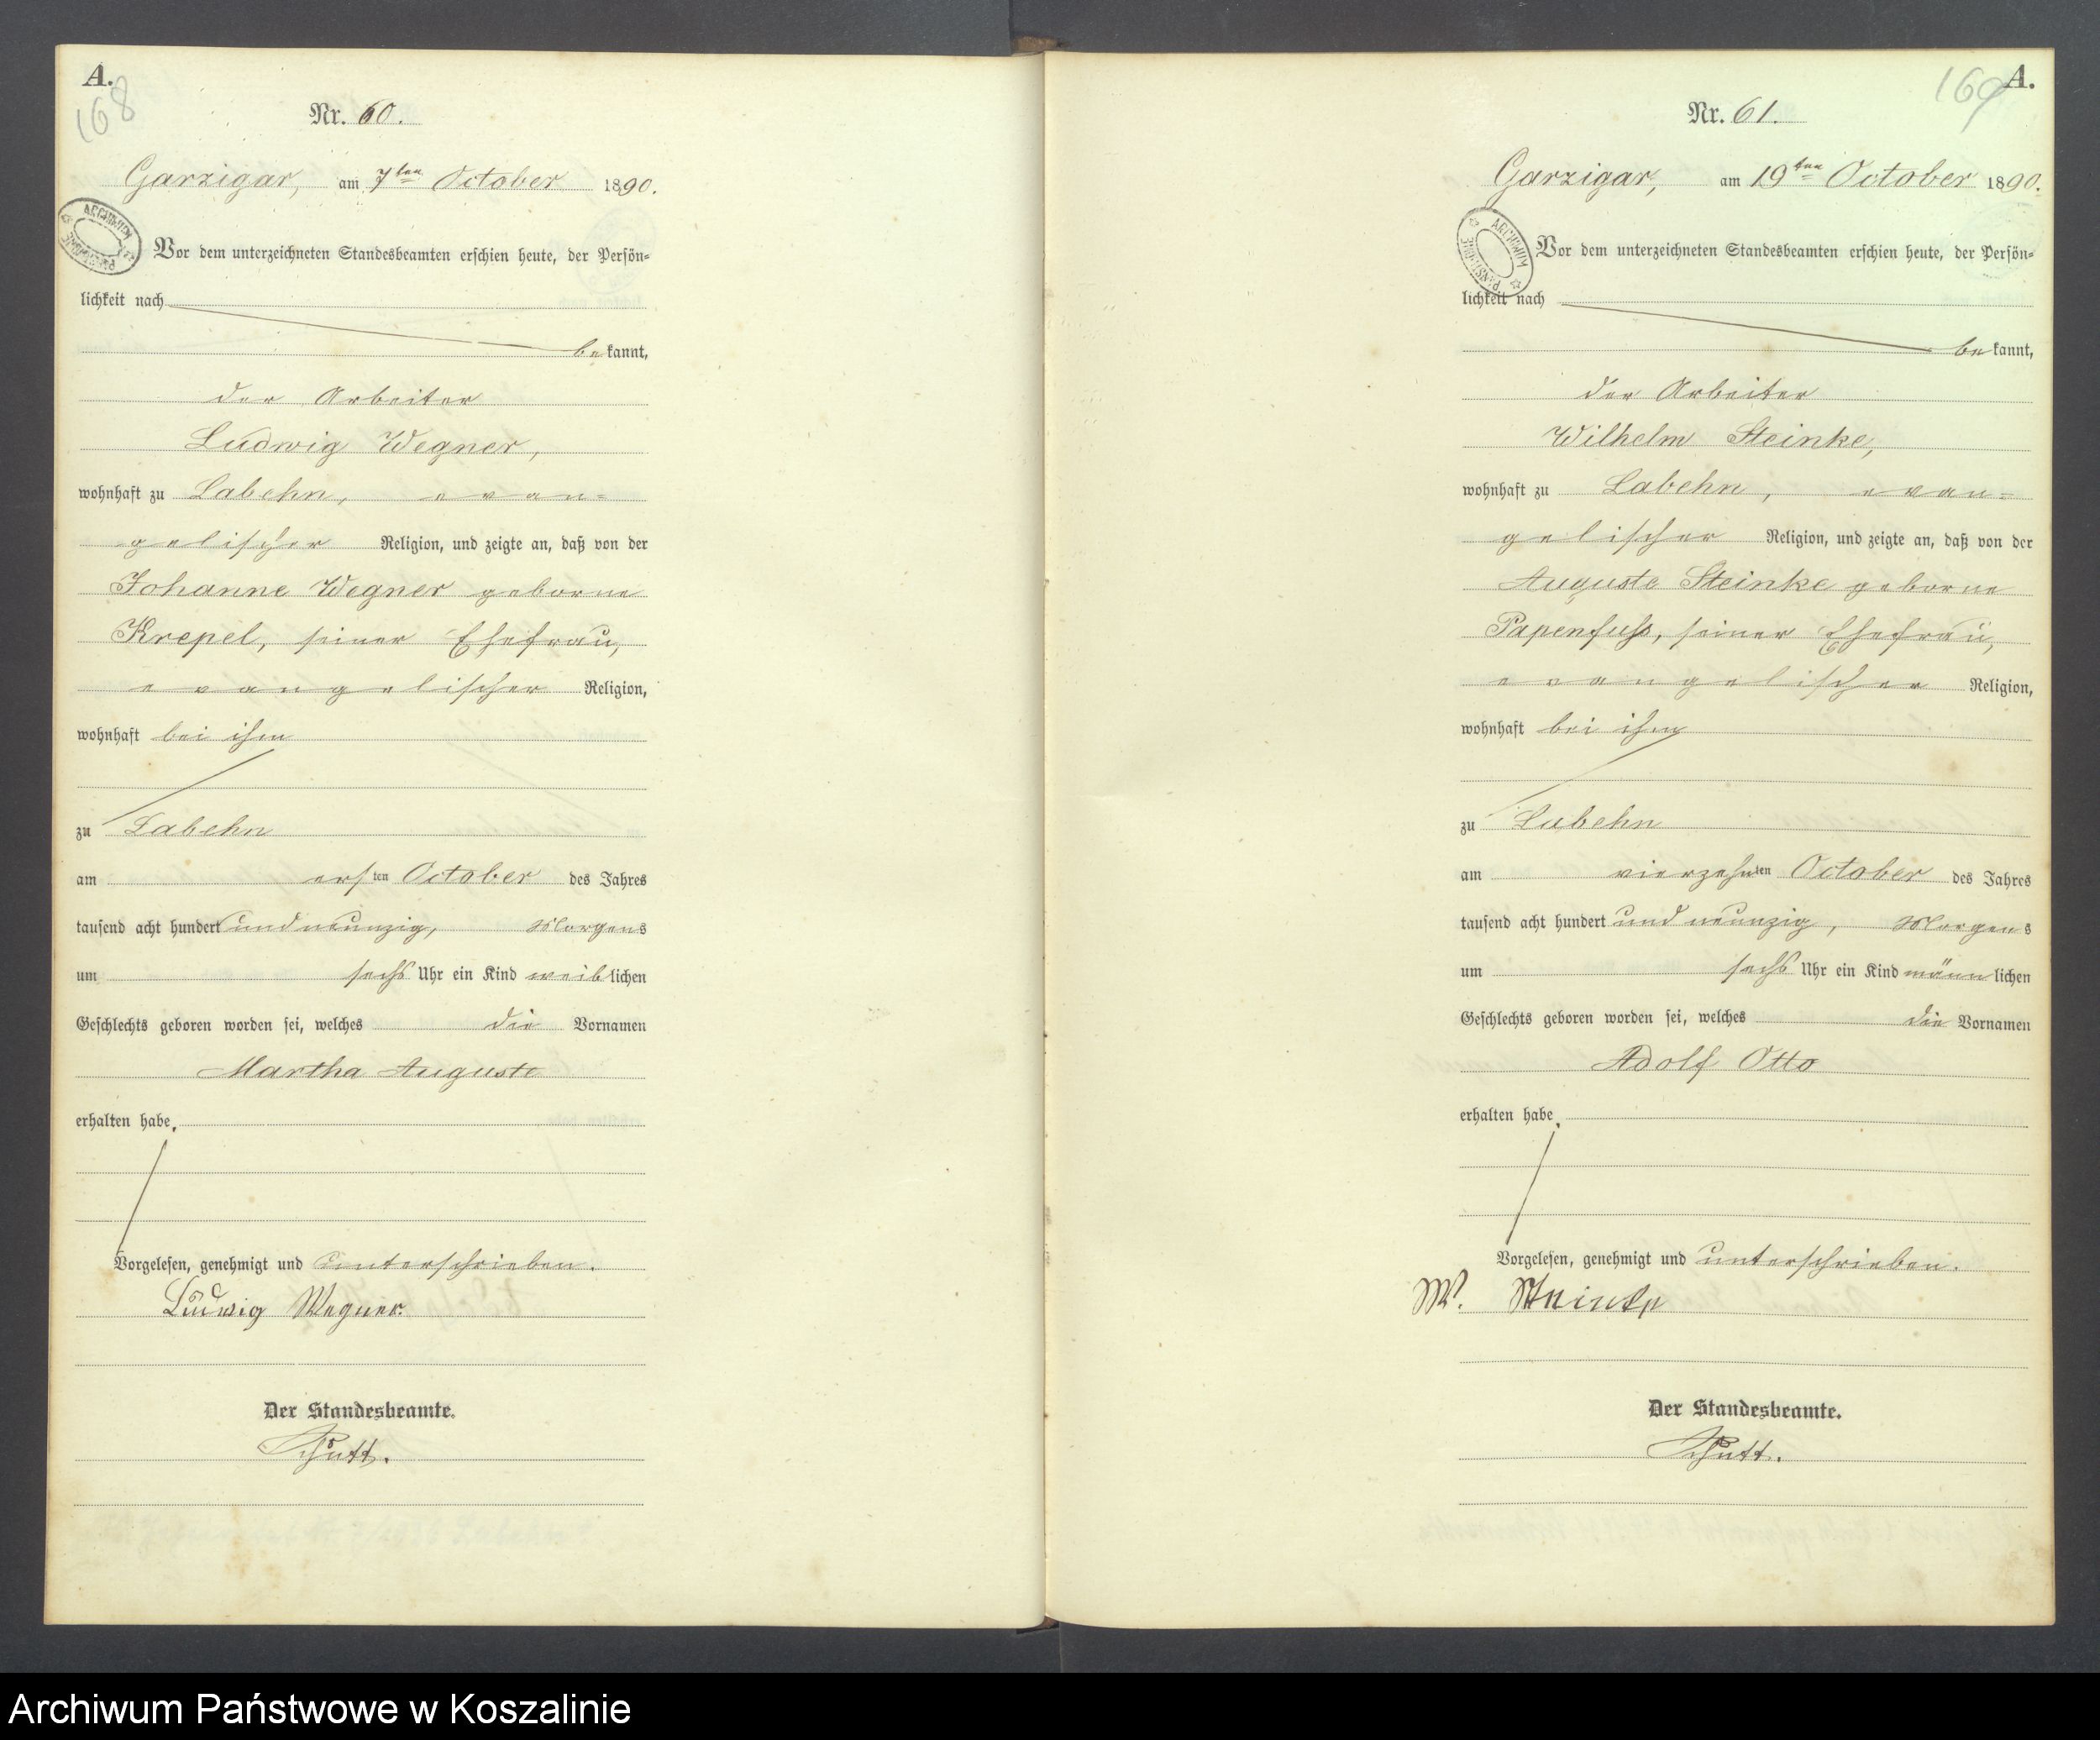 A.
168
Nr. 60.
Garzigar, am 7ten October 1890.
Vor dem unterzeichneten Standesbeamten erschien heute, der Persön=
lichkeit nach
bekannt,
der Arbeiter
Ludwig Wegner,
wohnhaft zu Labehn, evan=
gelischer Religion, und zeigte an, daß von der
Johanne Wegner geborne
Krepel, seiner Ehefrau,
evangelischer Religion,
wohnhaft bei ihm
zu Labehn
am ersten October des Jahres
tausend acht hundert und neunzig, Morgens
um sechs Uhr ein Kind weiblichen
Geschlechts geboren worden sei, welches die Vornamen
Martha Auguste
erhalten habe.
Vorgelesen, genehmigt und unterschrieben.
Ludwig Wegner.
Der Standesbeamte.
Schütt.
A.
169
Nr. 61.
Garzigar, am 19ten October 1890.
ARCHIWUM
Vor dem unterzeichneten Standesbeamten erschien heute, der Persön=
lichkeit nach
bekannt,
der Arbeiter
Wilhelm Steinke,
wohnhaft zu Labehn, evan=
gelischer Religion, und zeigte an, daß von der
Auguste Steinke geborne
Papenfuß, seiner Ehefrau,
evangelischer Religion,
wohnhaft bei ihm
zu Labehn
am vierzehnten October des Jahres
tausend acht hundert und neunzig, Morgens
um sechs Uhr ein Kind männlichen
Geschlechts geboren worden sei, welches die Vornamen
Adolf Otto
erhalten habe.
Vorgelesen, genehmigt und unterschrieben.
W. Steinke
Der Standesbeamte.
Schütt.
Archiwum Państwowe w Koszalinie